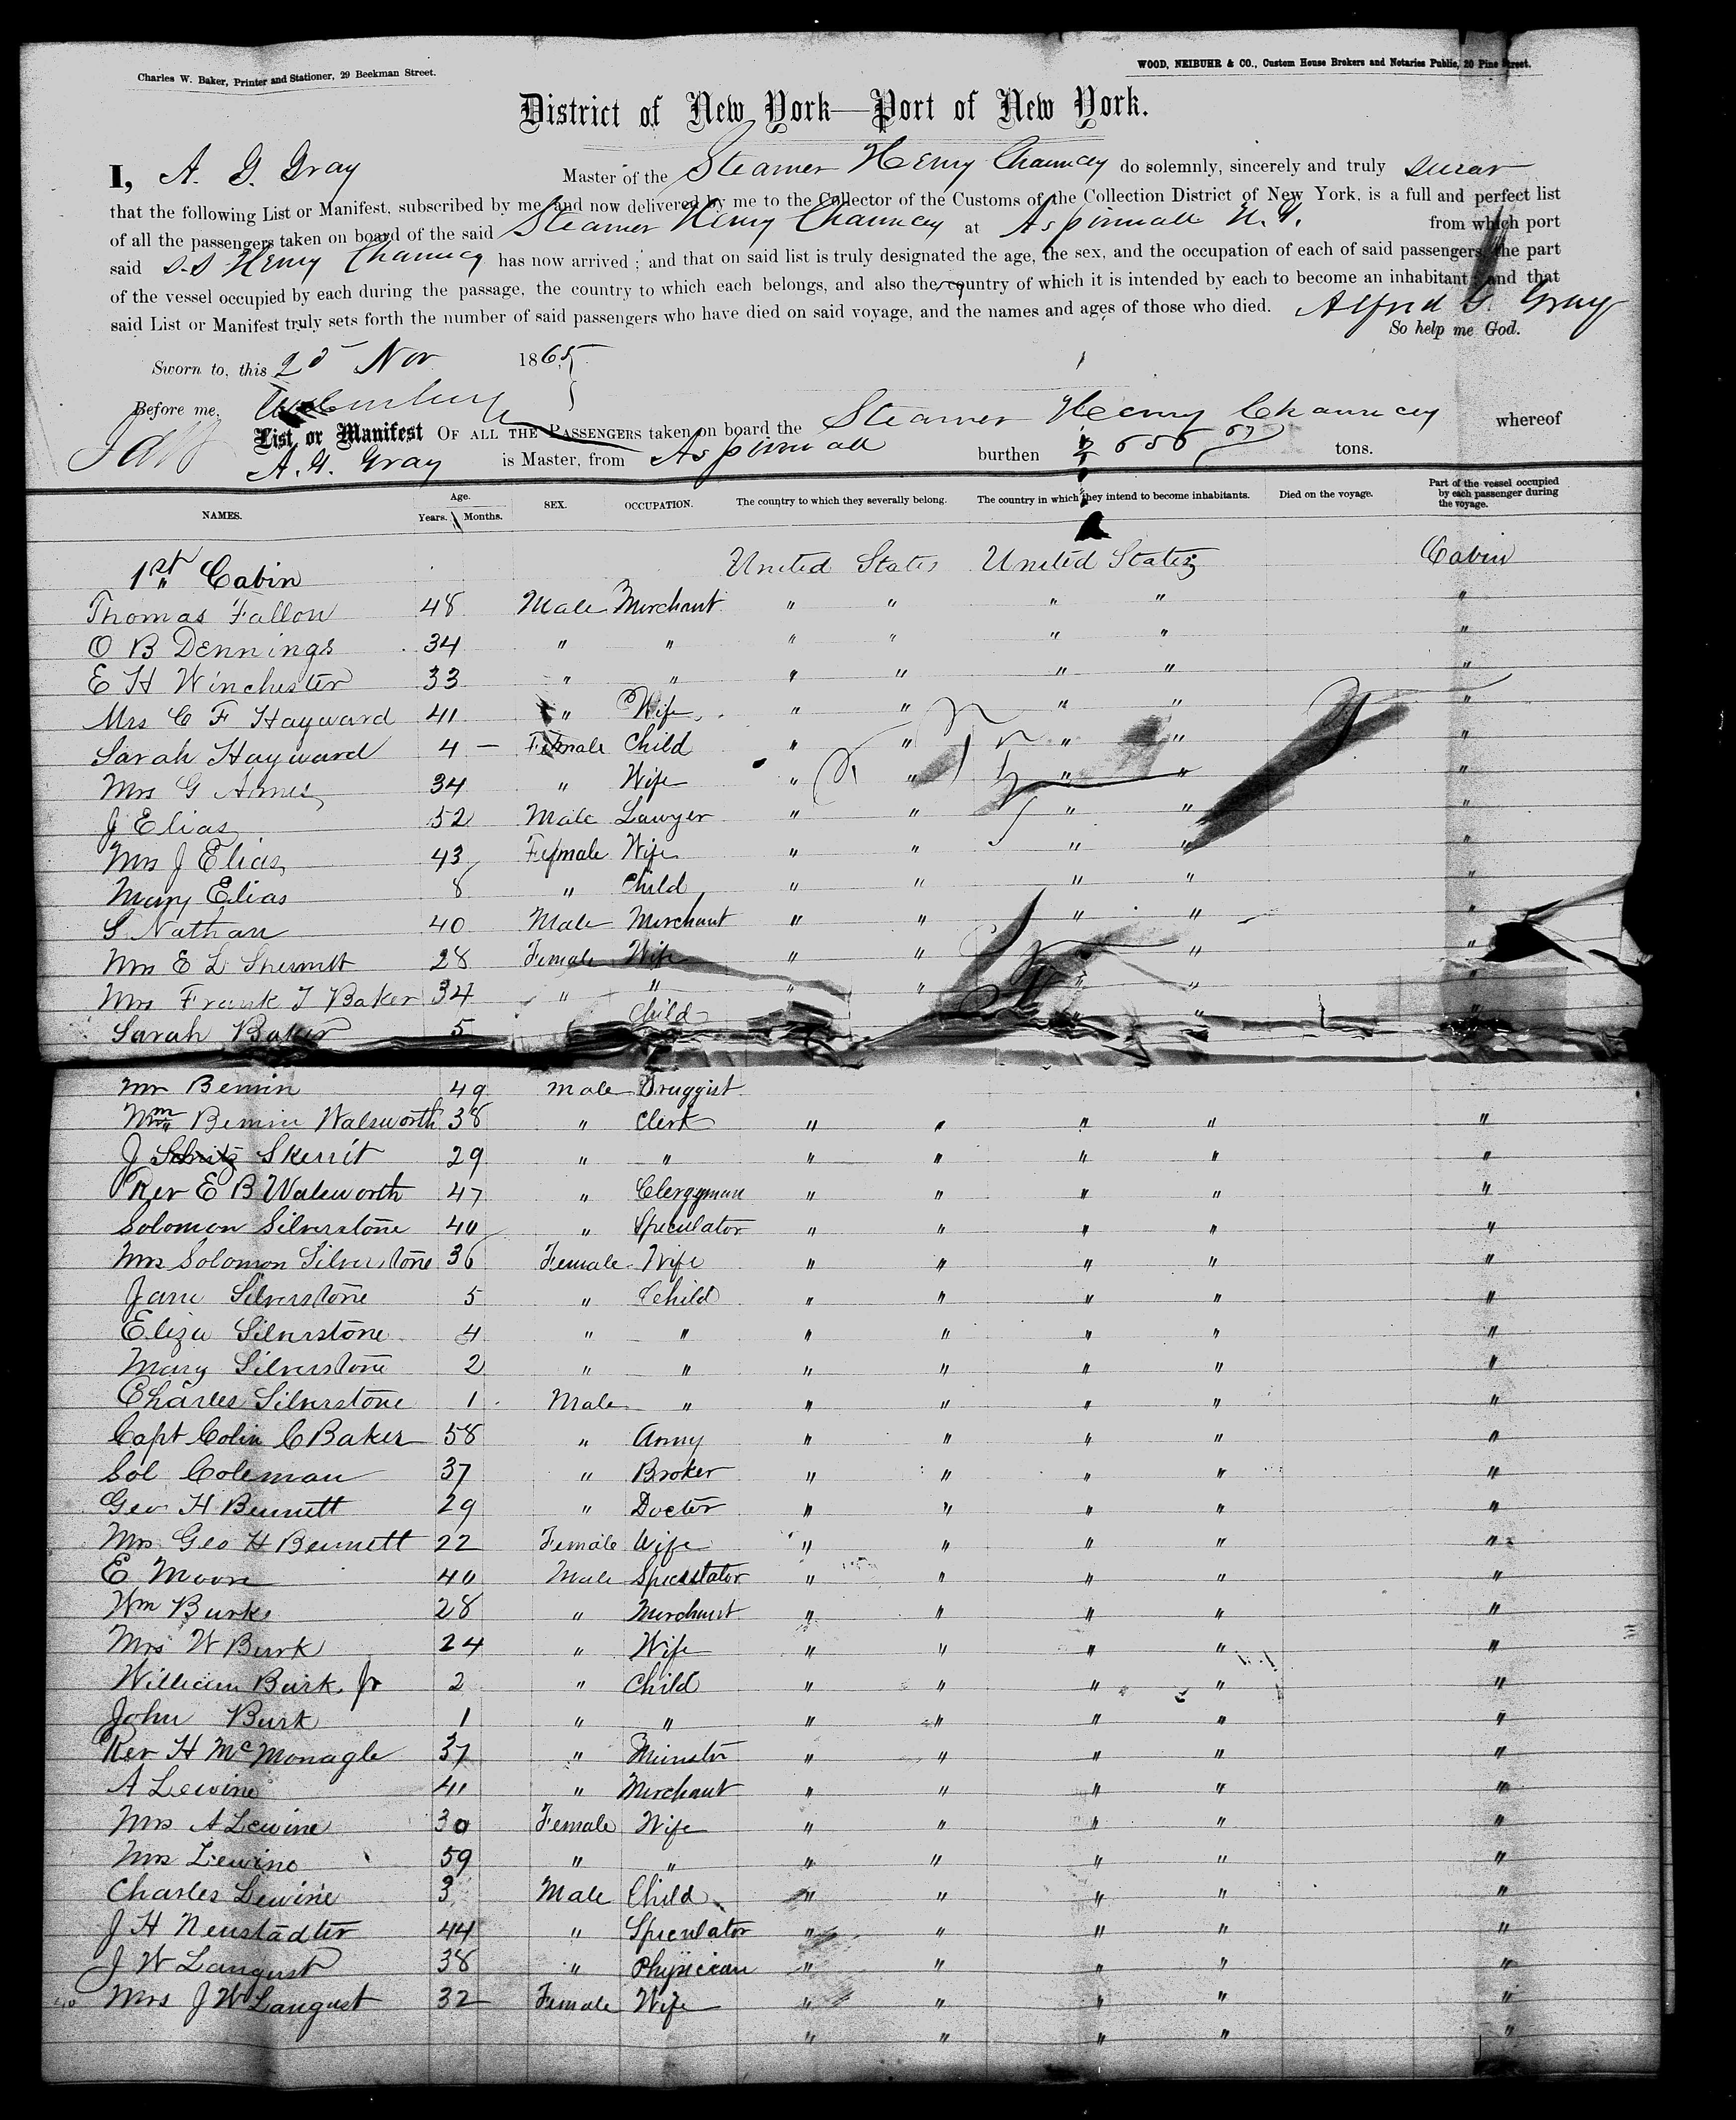 Charles W. Baker, Printer and Stationer, 29 Beekman Street.
WOOD, NEIBUHR & CO., Custom House Brokers and Notaries Public, 20 Pine Street.
District of New York—Port of New York.
I, A. G. Gray Master of the Steamer Henry Chauncey do solemnly, sincerely and truly swear
that the following List or Manifest, subscribed by me and now delivered by me to the Collector of the Customs of the Collection District of New York, is a full and perfect list
of all the passengers taken on board of the said Steamer Henry Chauncey at Aspinwall N. G. from which port
said S.S Henry Chauncey has now arrived; and that on said list is truly designated the age, the sex, and the occupation of each of said passengers, the part
of the vessel occupied by each during the passage, the country to which each belongs, and also the country of which it is intended by each to become an inhabitant; and that
said List or Manifest truly sets forth the number of said passengers who have died on said voyage, and the names and ages of those who died. Alfred G. Gray
So help me God.
Sworn to, this 25 Nov 1865
Before me,
List or Manifest OF ALL THE PASSENGERS taken on board the Steamer Henry Chauncey whereof
A. G. Gray is Master, from Aspinwall burthen tons.
NAMES. Age. Years. Months. SEX. OCCUPATION. The country to which they severally belong. The country in which they intend to become inhabitants. Died on the voyage. Part of the vessel occupied by each passenger during the voyage.
1st Cabin United States United States Cabin
Thomas Fallon 48 Male Merchant " " " " "
O B Dennings 34 " " " " " " "
E H Winchester 33 " " " " " " "
Mrs C F Hayward 41 " Wife " " " " "
Sarah Hayward 4 — Female Child " " " " "
Mrs G 34 " Wife " " " " "
J Elias 52 Male Lawyer " " " " "
Mrs J Elias 43 Female Wife " " " " "
Mary Elias 8 " Child " " " " "
S Nathan 40 Male Merchant " " " " "
Mrs E L 28 Female Wife " " " " "
Mrs Frank T Baker 34 " " " " " " "
Sarah Baker 5 Child " " "
Mr Bemin 49 Male Druggist
Bemin Walsworth 38 " Clerk " " " " "
J Skerrit 29 " " " " " " "
Rev E B Walsworth 47 " Clergyman " " " " "
Solomon Silverstone 40 " Speculator " " " " "
Mrs Solomon Silverstone 36 Female Wife " " " " "
Jane Silverstone 5 " Child " " " " "
Eliza Silverstone 4 " " " " " " "
Mary Silverstone 2 " " " " " " "
Charles Silverstone 1 Male " " " " " "
Capt Colin C Baker 58 " Army " " " " "
Sol Coleman 37 " Broker " " " " "
Geo H Bennett 29 " Doctor " " " " "
Mrs Geo H Bennett 22 Female Wife " " " " "
E Moore 40 Male Specstator " " " " "
Wm Burk 28 " Merchant " " " " "
Mrs W Burk 24 " Wife " " " " "
William Burk Jr 2 " Child " " " " "
John Burk 1 " " " " " " "
Rev H McMonagle 37 " Minister " " " " "
A Lewine 41 " Merchant " " " " "
Mrs A Lewine 30 Female Wife " " " " "
Mrs Lewine 59 " " " " " " "
Charles Lewine 3 Male Child " " " " "
J H Neustadter 44 " Speculator " " " " "
J W Langust 38 " Physician " " " " "
Mrs J W Langust 32 Female Wife " " " " "
" " " " "